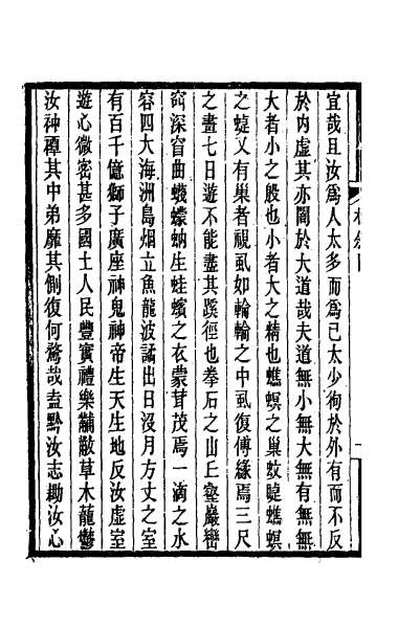 宜哉且汝為人太多而為己太少徇於外有而不反
於内虛其亦闇於大道哉夫道無小無大無有無無
大者小之殷也小者大之精也蟭螟之巢蚊睫蟭螟
之睫又有巢者視虱如輪輪之中虱復傅緣焉三尺
之畫七日遊不能盡其蹊徑也拳石之山上壑巖巒
窮深窅曲蠛蠓蚋生蛙蠙之衣蒙茸茂焉一滴之水
容四大海洲島烟立魚龍波譎出日沒月方丈之室
有百千億獅子廣座神鬼神帝生天生地反汝虛室
遊心微密甚多國土人民豐實禮樂黼黻草木蘢鬱
汝神禫其中弟靡其側復何驚哉盍黔汝志耡汝心